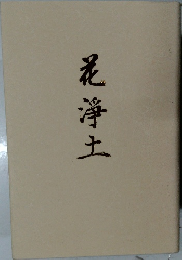 花淨土